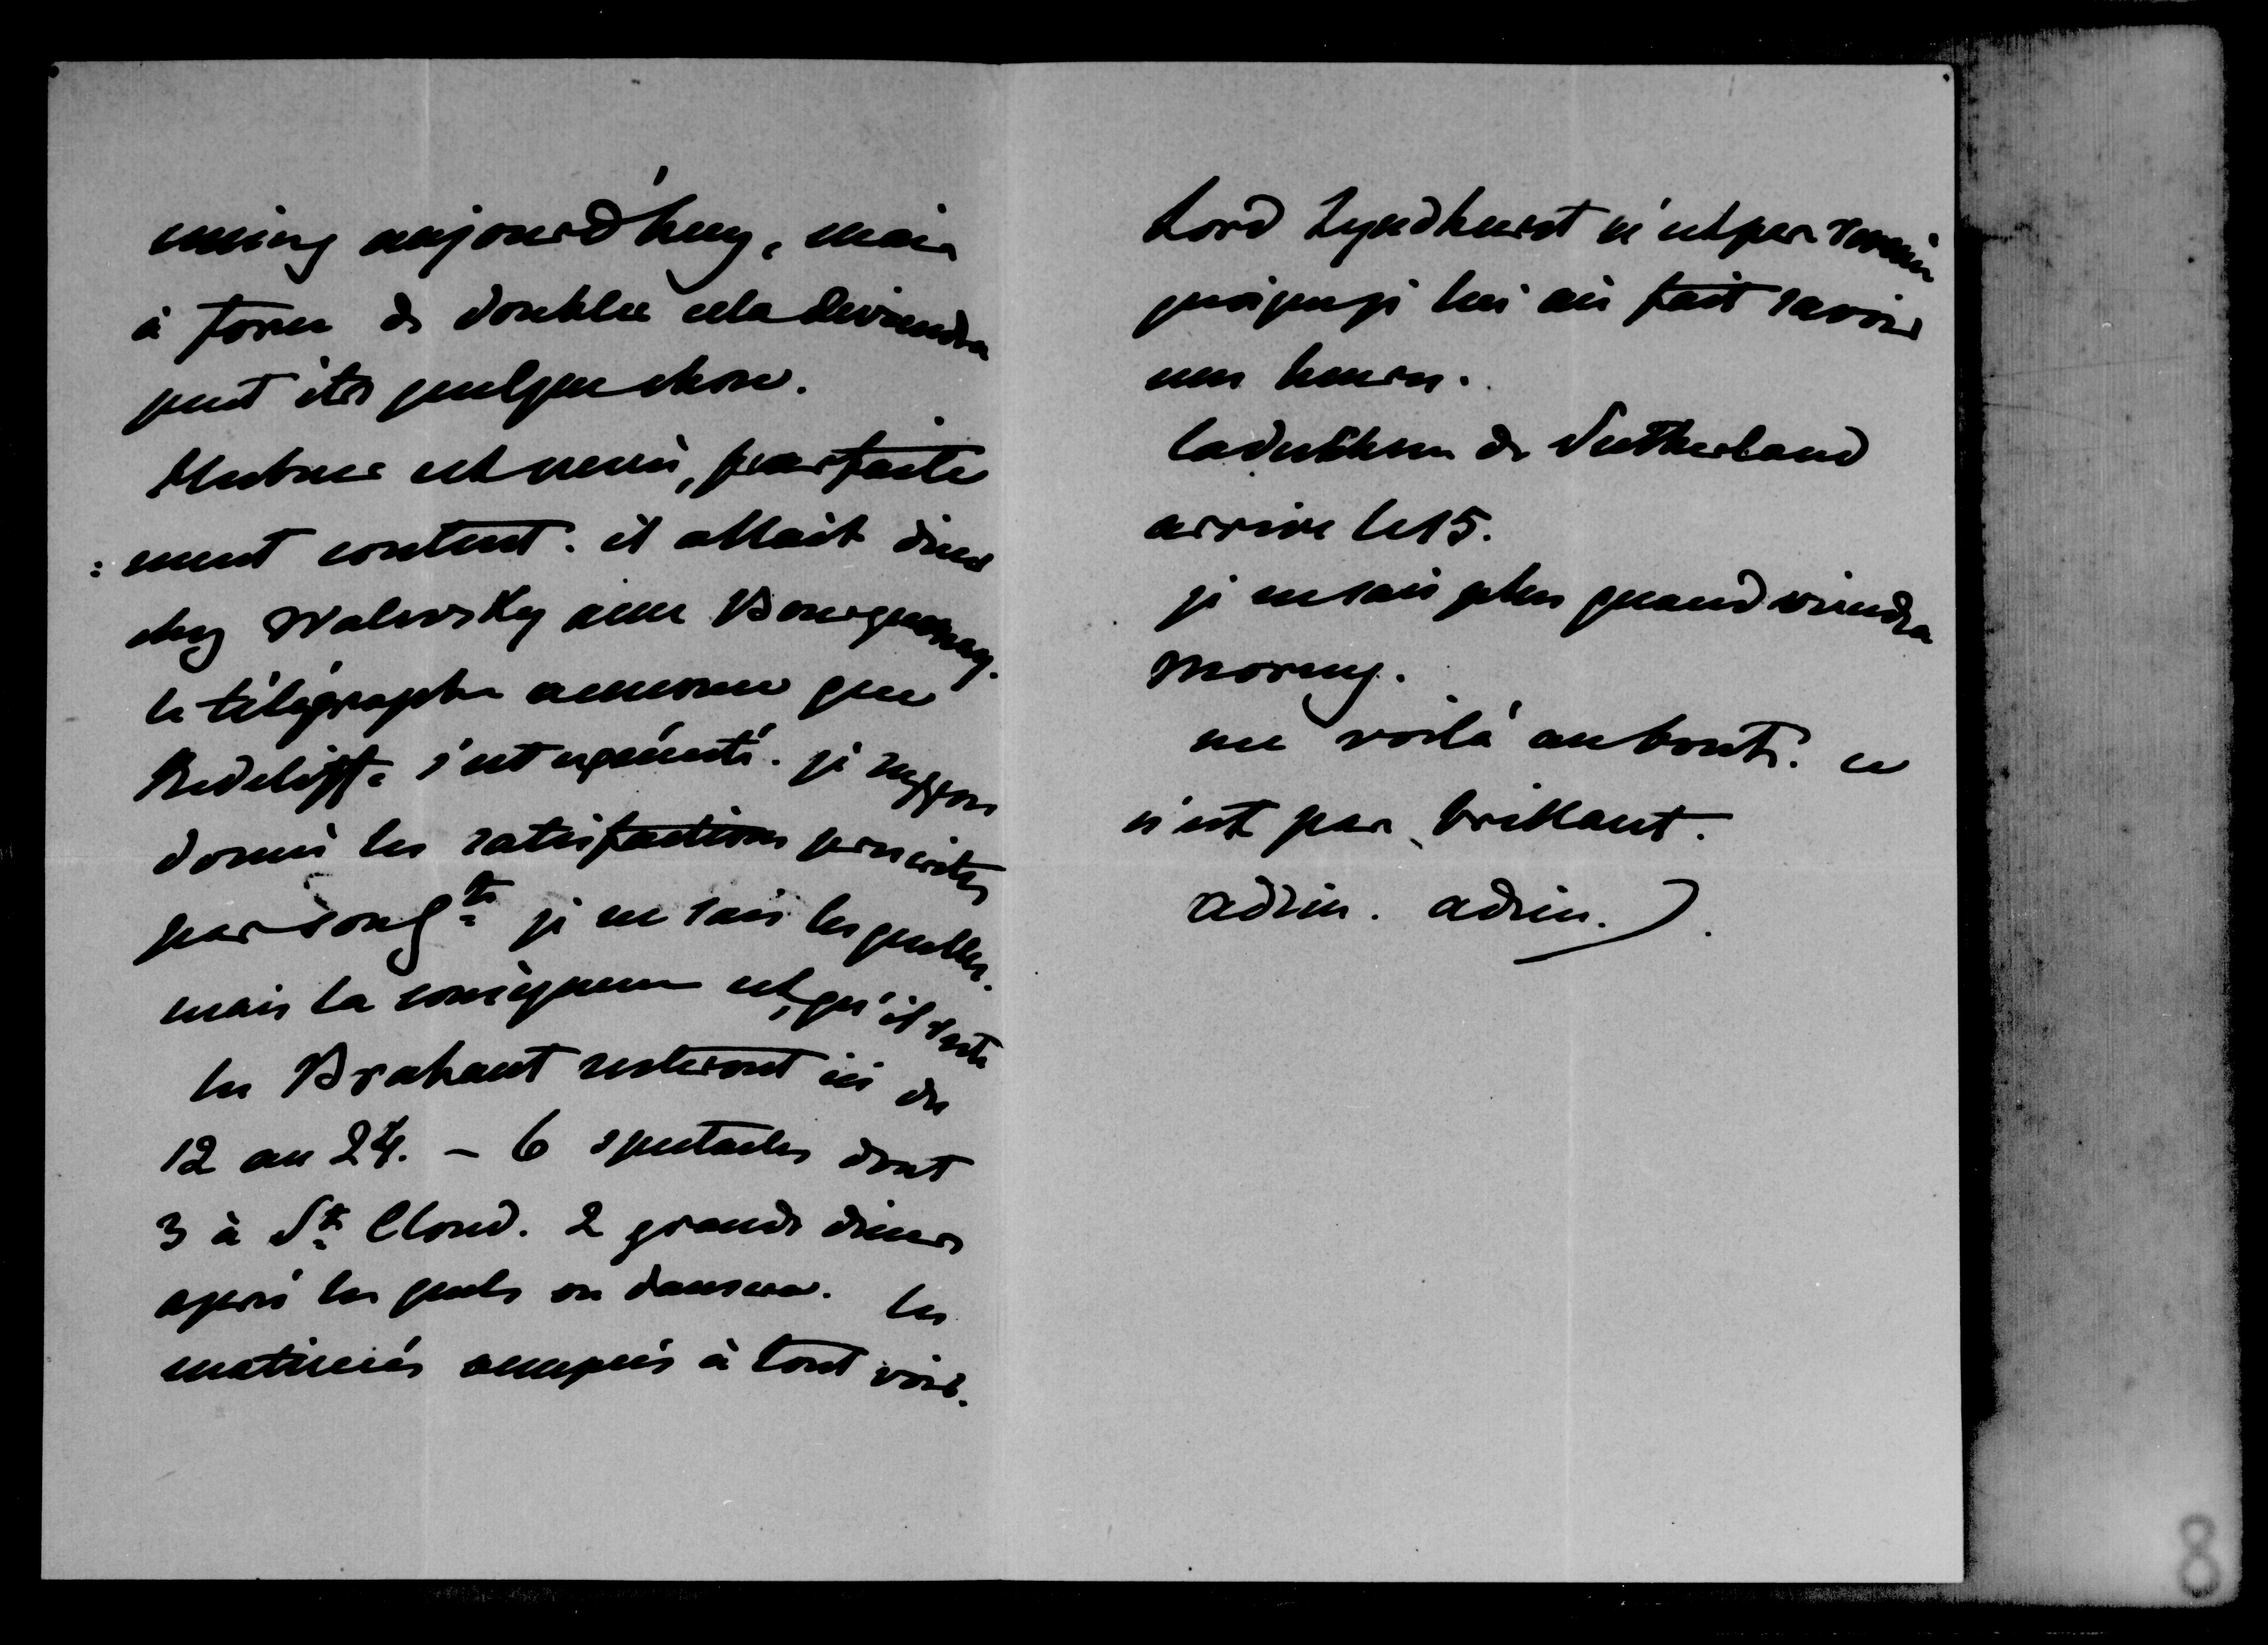 mieux aujourd'huy, mais
à force de doubler cela deviendra
peut être quelque chose.
Hubner est venu, parfaite
: ment content. il allait diner
chez Walevsky avec Bourqueney.
le télégraphe annonce que
Redcliffe s'est exécuté. je suppose
donné les satisfactions prescrites
par son gt. je ne sais lesquelles.
mais la conséquence est, qu'il reste
les Brabant resteront ici du
12 au 24. - 6 spectacles dont
3 à St Cloud. 2 grands diners
après lesquels on dansera. les
matinées occupées à tout voir.
Lord Lyndhurst n'est pas venu
quoique je lui aie fait savoir
mes heures.
la duchesse de Sutherland
arrive le 15.
je ne sais plus quand viendra
Morny.
me voilà au bout. ce
n'est pas brillant.
adieu. adieu.
8